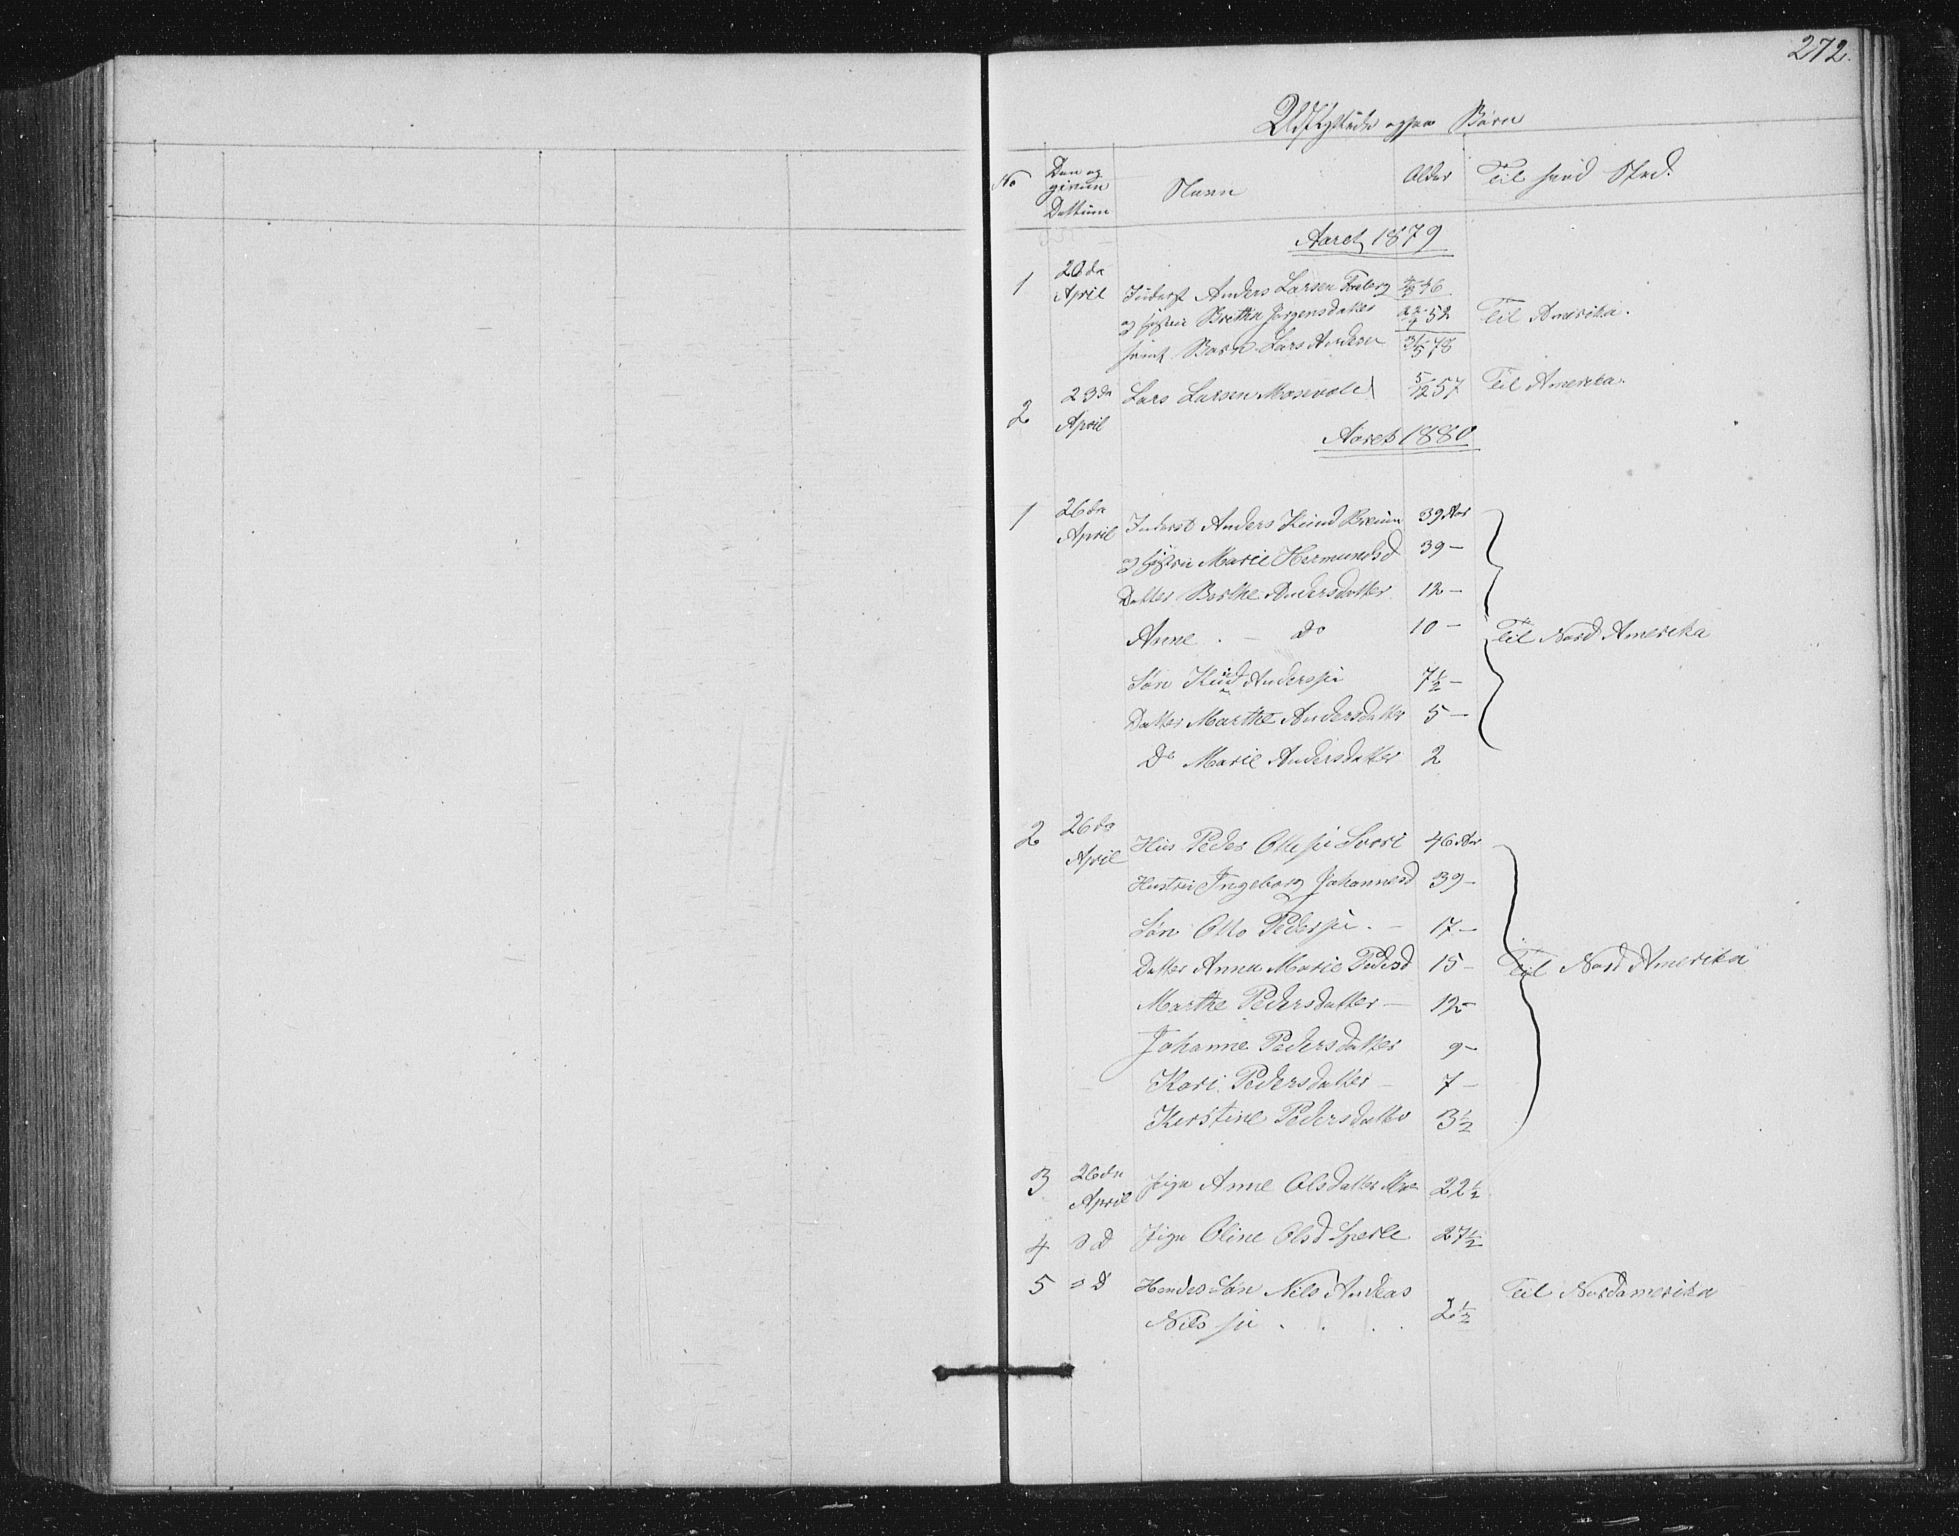 272.
Udflyttede ogsaa Børn
No
Den og
given
Dattum
Navn
Alder
Til hvad Sted.
Aaret 1879
1
20de
April
Inderst Anders Larsen
46
Til Amerika.
og Hustru Brethe Jørgensdatter
52
samt Barn Lars Andersen
31/5 78
2
23de
April
Lars Larsen Mosevold
5/12 57
Til Amerika.
Aaret 1880
1
26de
April
Inderst Anders Knud
39 Aar
og Hustru Marie Hermundsd
39 –
Datter Berthe Andersdatter
12 –
Anne – do
10 –
Til Nord Amerika
Søn Knud Anderssen
7½ –
Datter Marthe Andersdatter
5 –
Do Marie Andersdatter
2
2
26de
April
Hus Peder Ottesen
46 Aar
Hustru Ingeborg Johannesd
39 –
Søn Otto Pedersen. –
17 –
Datter Anna Marie Pedersd
15 –
Til Nord Amerika
Marthe Pedersdatter –
12 –
Johanne Pedersdatter
9 –
Kari Pedersdatter –
7 –
Kerstine Pedersdatter
3½
3
26de
April
Pige Anne Olsdatter Moe
22½
4
Pige Oline Olsd Sperle
27½
5
Hendes Søn Nils Andreas
Til Nordamerika
Nilssen . . . .
2½